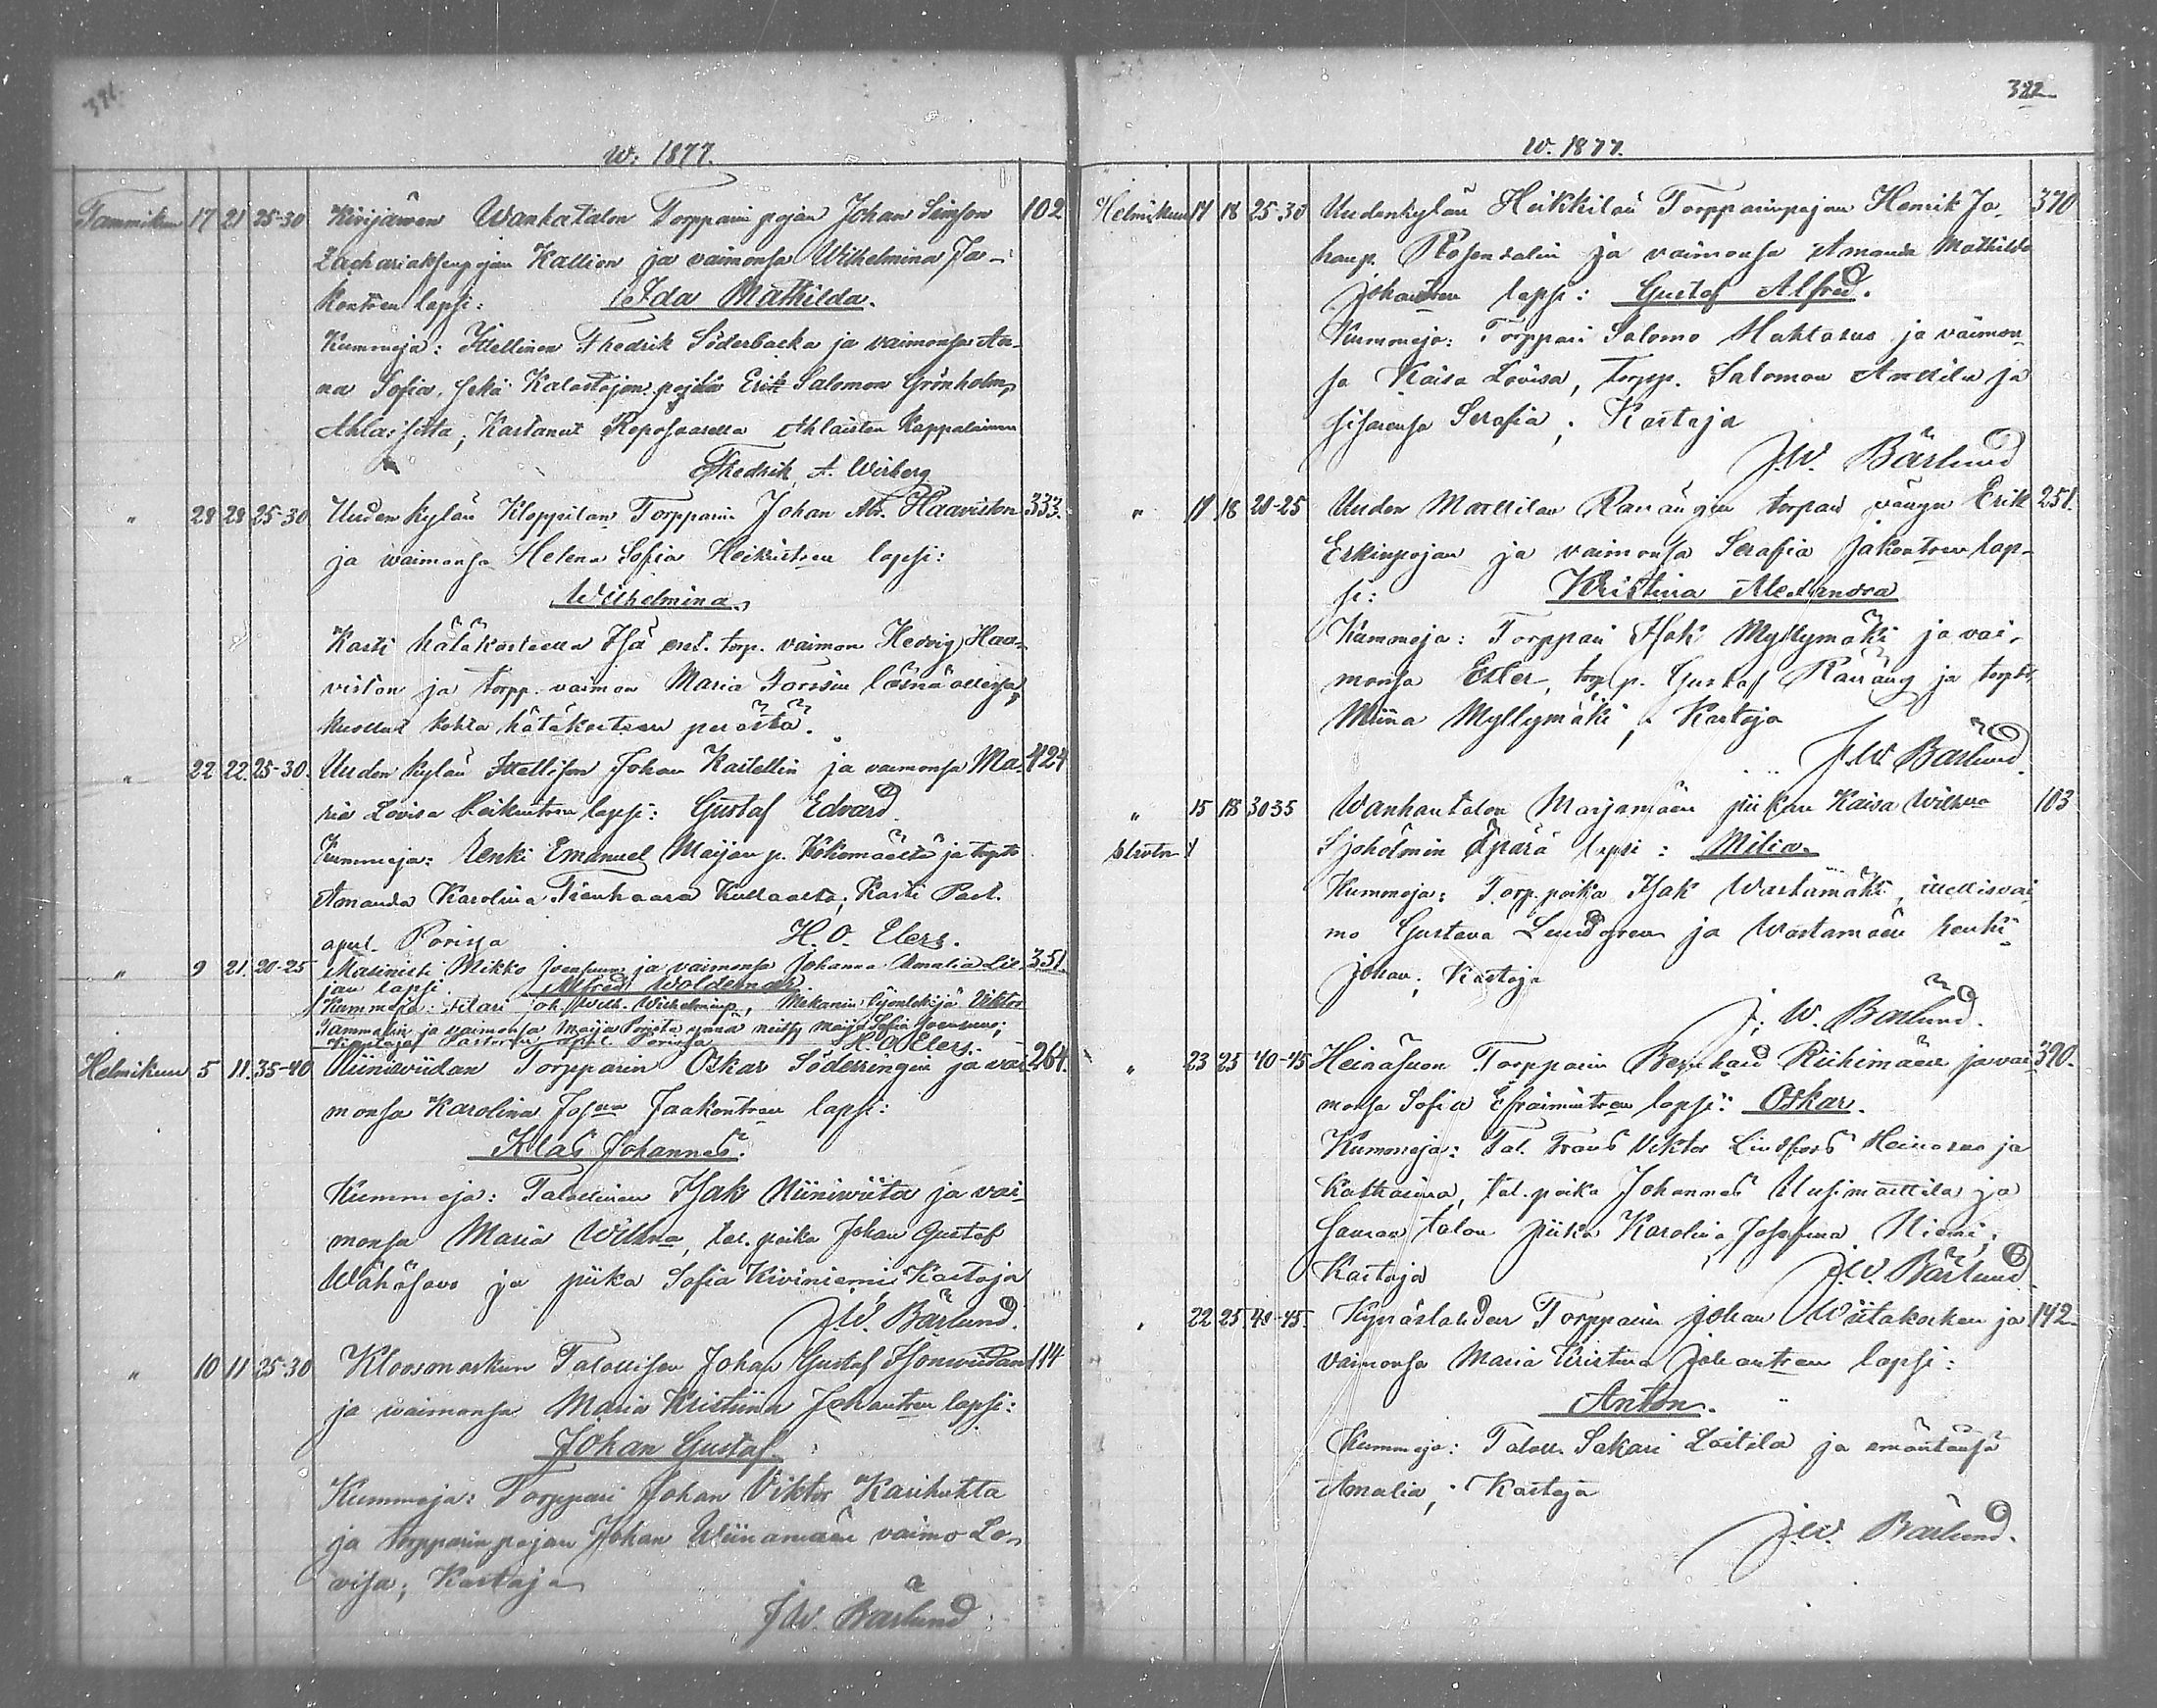 321.
W. 1877.
Tammikuu 17 21 25-30 Kivijärven Wanhatalon Torpparin pojan Johan Simson 102
Zachariaksenpojan Kallion ja vaimonsa Wilhelmina Ja-
kontren lapsi: Ida Mathilda.
Kummeja: Itsellinen Fredrik Söderbacka ja vaimonsa An-
na Sofia, sekä Kalastajan pojka Erik Salomon Grönholm
Ahlaisista; Kastanut Reposaarella Ahlaisten Kappalainen
Fredrik A. Wirberg
" 28 28 25-30 Uuden kylän Kloppilan Torpparin Johan Haaviston 333.
ja waimonsa Helena Sofia Heikintren lapsi:
Wilhelmina.
Kasti hätäkasteella Isä ent. torp. vaimon Hedvig Haa-
viston ja torpp. vaimon Maria Forssin läsnäollessa,
kuollut kohta hätäkasteen perästä.
" 22 22 25-30. Uuden kylän Itsellisen Johan Kastellin ja vaimonsa Ma- 424
ria Lovisa Heikintren lapsi: Gustaf Edvard.
Kummeja: Renki Emanuel Maijan p. Kokemäeltä ja torp.
Amanda Karolina Tienhaara Kullaalta; Kasti Past.
apul. Porissa H. O. Elers.
" 9 21 20-25 Masinisti Mikko Joensuun ja vaimonsa Johanna Amalia 351.
jan lapsi. Alfred Woldemar.
Kummeja: Filari Joh. Wilh. Wilhelminp., Mekanin työntekijä Viktor
Tammelin ja vaimonsa Maija Porista neitsy Maija Sofia Joensuu;
Kastaja Pastorin apul. Porissa H. O. Elers.
Helmikuu 5 11. 35-40 Niiniwiidan Torpparin Oskar Söderringin ja vai- 264.
monsa Karolina Jaakontren lapsi:
Klas Johannes.
Kummeja: Talollinen Isak Niiniwiita ja vai-
monsa Maria Wilhna, tal. poika Johan Gustaf
Wähäsavo ja piika Sofia Kiviniemi; Kastaja
J.W. Bärlund.
" 10 11 25-30 Kloosmarkun Talollisen Johan Gustaf Isonwiidan 114
ja waimonsa Maria Kristiina Johantren lapsi:
Johan Gustaf.
Kummeja: Torppari Johan Viktor Karihuhta
ja torpparin pojan Johan Wiinamäen vaimo Lo-
visa; Kastaja
J.W. Bärlund.
322
W. 1877.
Helmikuu 17 18 25-30 Uudenkylän Heikkilän Torpparinpojan Henrik Jo- 370
hanp. Rosendalin ja vaimonsa Amanda Mathilda
Johantren lapsi: Gustaf Alfred.
Kummeja: Torppari Salomo Huhtasuo ja vaimon-
sa Kaisa Lovisa, torpp. Salomon Anttila ja
sisarensa Serafia; Kastaja
J.W. Bärlund
" 17 18 20-25 Uuden Mattilan torpan väyyn Erik 251.
Erkinpojan ja vaimonsa Serafia Jakontren lap-
si: Kristina Alexandra
Kummeja: Torppari Isak Myllymäki ja vai-
monsa Ester, torp. p. Gustaf Rauäng ja torp.
Miina Myllymäki; Kastaja
J.W. Bärlund.
" 15 18 30-35 Wanhantalon Marjamäen piikan Kaisa Wilhna 103
Sjöholmin Äpärä lapsi: Milia.
Kummeja: Torp. poika Isak Wastamäki, itsellisvai-
mo Gustava Lundgren ja Wastamäen henki
Johan; Kastaja
J. W. Bärlund.
" 23 25 40-45 Heinäsuon Torpparin Bernhard Riihimäen ja vai- 390.
monsa Sofia Efraimintren lapsi: Oskar.
Kummeja: Tal. Frans Viktor Lindfors Heinäsuo ja
Katharina, tal. poika Johannes Uusimattila ja
Saman talon piika Karolina Josefina Niemi;
Kastaja J.W. Bärlund
" 22 25 40-45. Kynäslahden Torpparin Johan Wiitakosken ja 142.
vaimonsa Maria Kristina Johantren lapsi:
Anton.
Kummeja: Taloll. Sakari Laitila ja emäntänsä
Amalia; Kastaja
J.W. Bärlund.